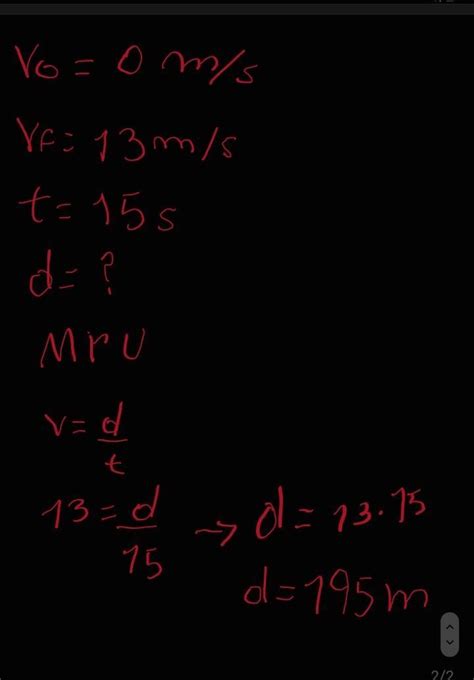 Vo = 0 m/s
VF = 13 m/s
t = 15 s
d = ?
MrU
v = d/t
13 = d/15 → d = 13 . 15
d = 195 m
2/2